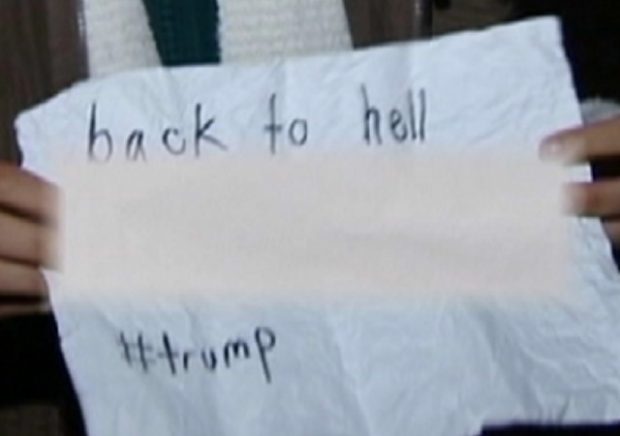 back to hell
#trump